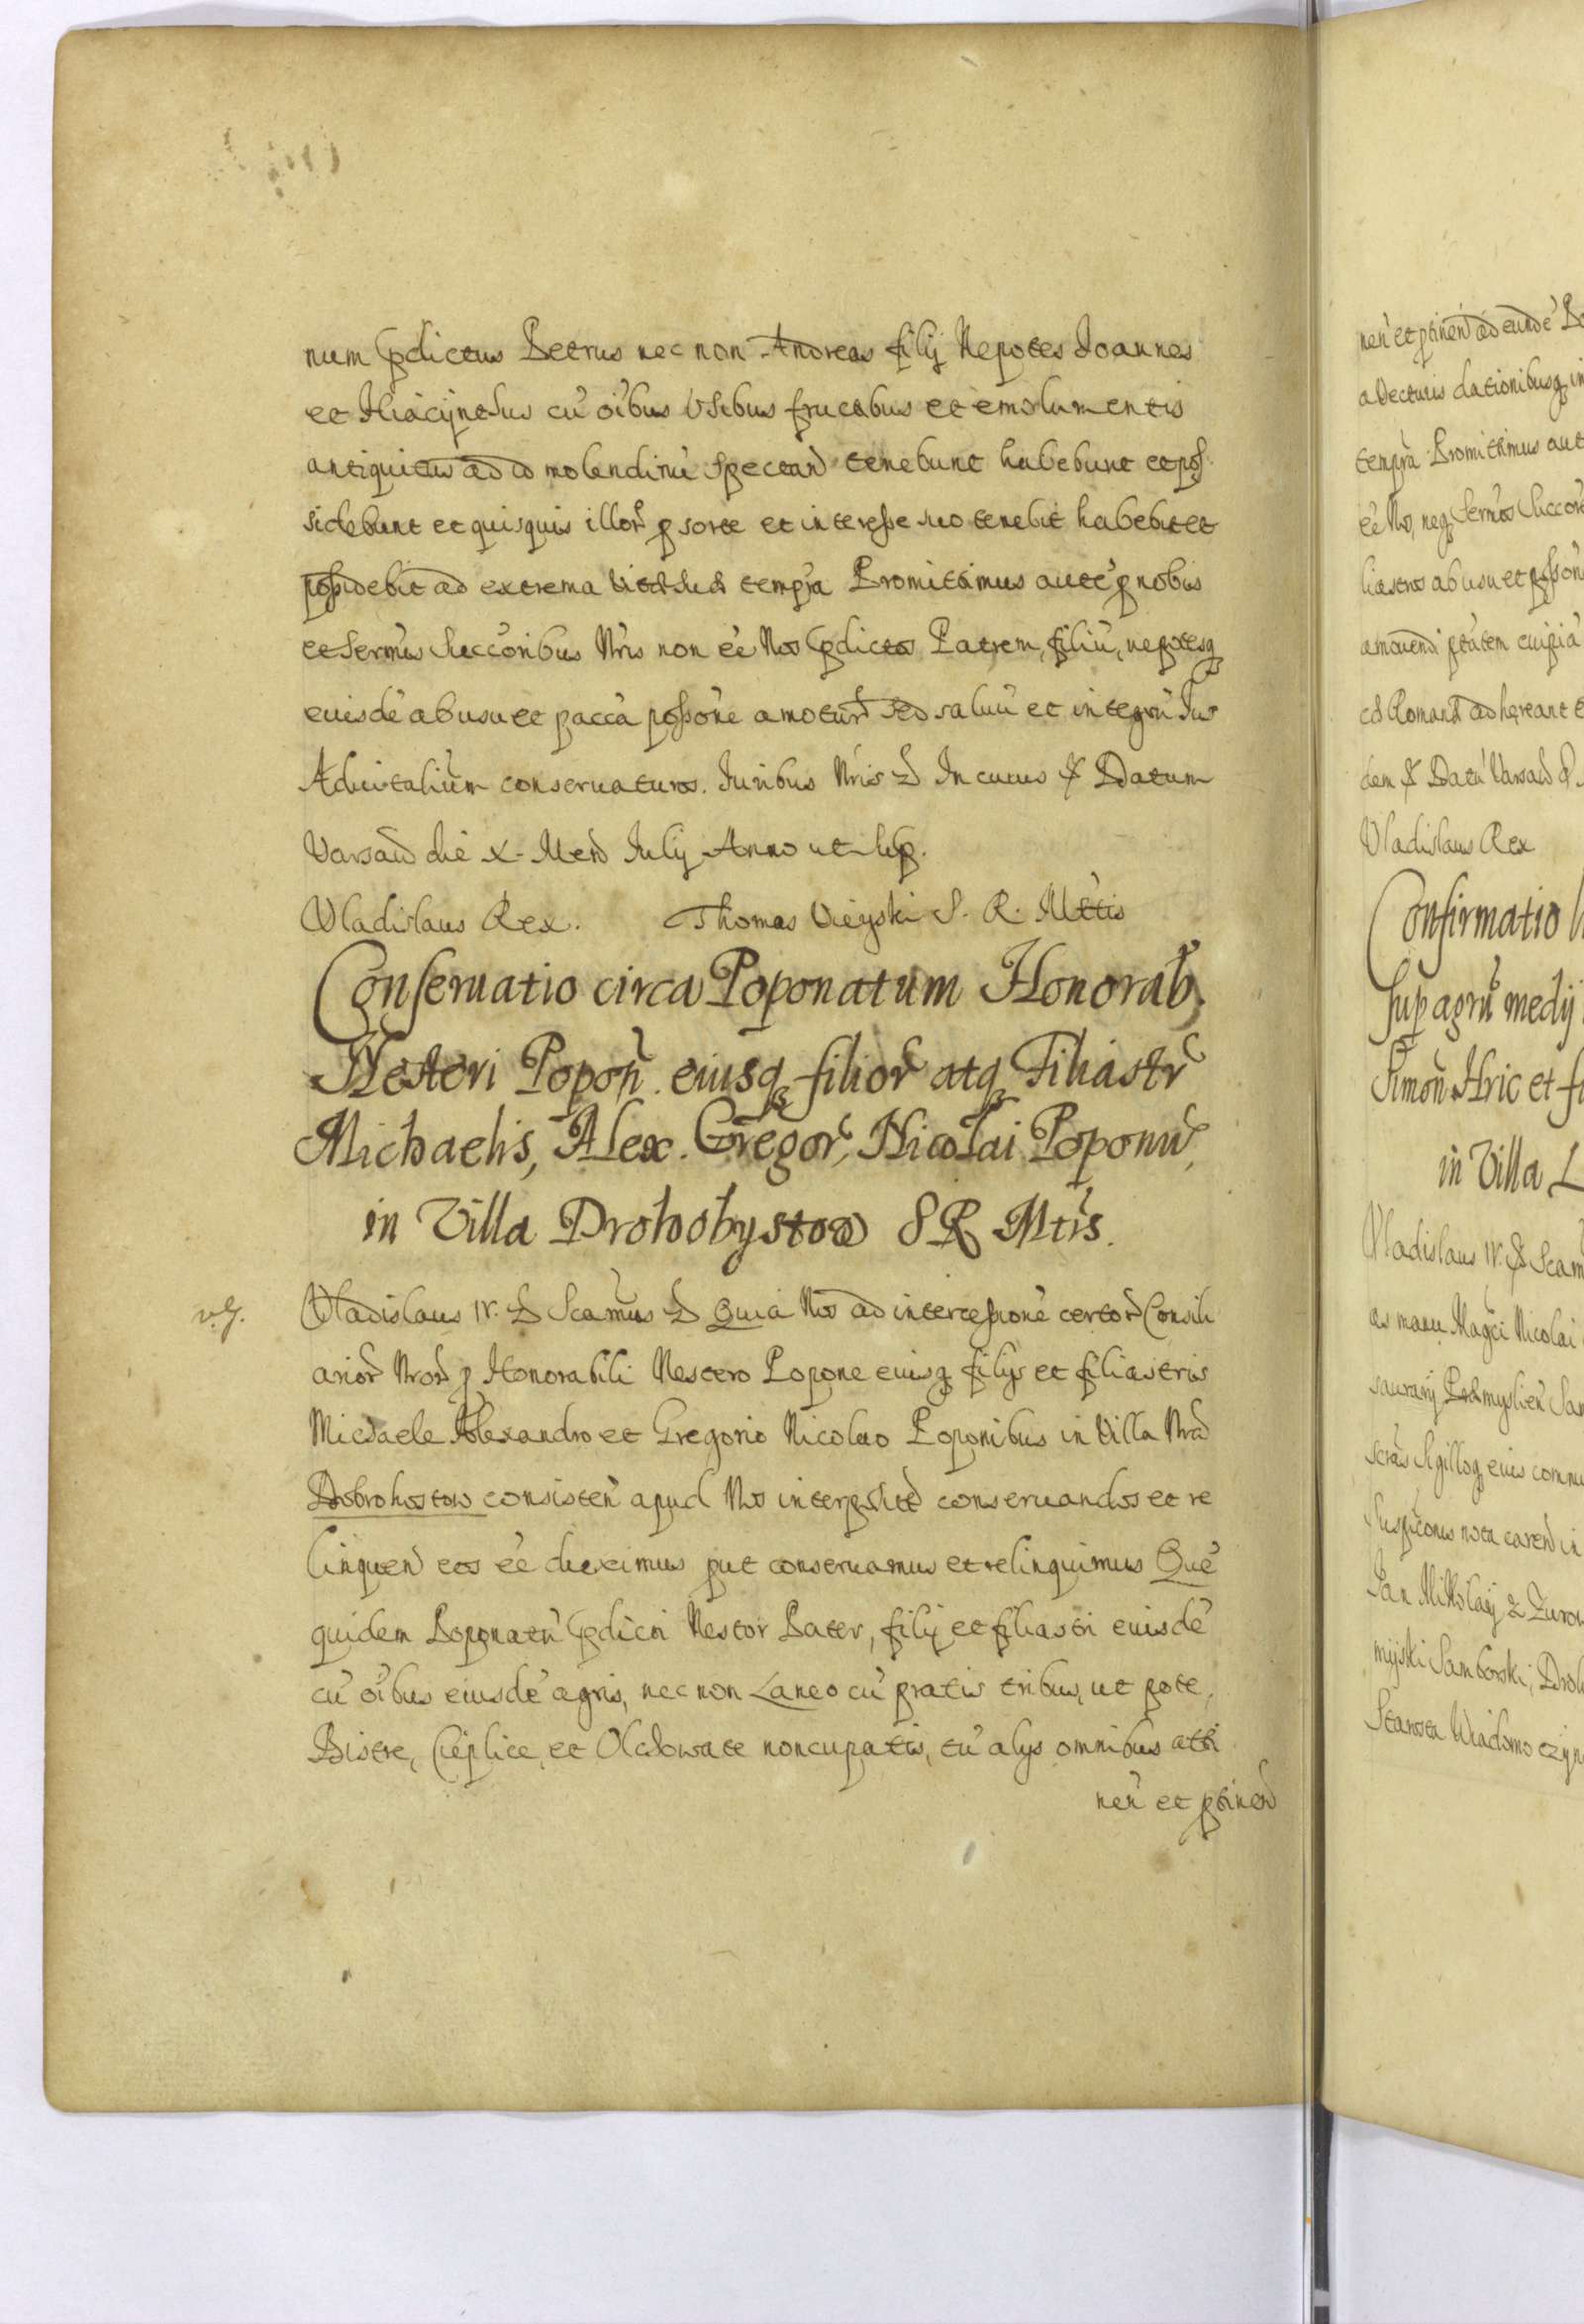 num pdictus Petrus nec non Andreas filij Nepotes Joannes
et Hiacijnthus cu oibus Usibus fructibus et emolumentis
antiquitus ad id molendinu spectand tenebunt habebunt et pos
sidebunt et quisquis illor p sorte et interesse suo tenebit habebit et
possidebit ad extrema vitae suae tempra Promittimus aute p nobis
et Sermis Succoribus Nris non ee Nos pdictos Patrem, filiu, nepotesq
euisde ab usu et pacca possone amotur sed saluu et integru Jus
Aduitalium conseruaturos. Juribus Nris & In cuius & Datum
Varsau die X. Mens July Anno ut sup.
Vladislaus Rex. Thomas Vieyski S. R. Mttis
Conseruatio circa Poponatum Honorab.
Nesteri Popon. eiusq filior atq Filiastr
Michaelis, Alex. Gregor, Nicolai Poponu,
in Villa Drohobystow S R Mtis.
Vladislaus IV. & Scamus & Quia Nos ad intercessione certor Consili
arior Nror p Honorabili Nestero Popone eiusq filijs et filiastris
Michaele Alexandro et Gregorio Nicolao Poponibus in Villa Nra
Dobrohostow consisten apud Nos interposit conseruandos et re
linquen eos ee duximus put conseruamus et relinquimus Que
quidem Poponatu pdicti Nestor Pater, filij et filiastri euisde
cu oibus eiusde agris, nec non Laneo cu pratis tribus, ut pote,
Bistre, Cieplice, et Olchowate noncupatis, tu alys omnibus atti
nen et ptinen
v.g.
nen et ptinen ad eunde Po
a Vecturis dationibusq in
tempra Promittimus aut
ee Nos, neq Sermos Succor
liastros ab usu et posson
amouendi ptatem cuipia
Romana adhereant
dem & Datu Varsau
Vladislaus Rex
Confirmatio
Sup agru medij
Simon Hric et fi
in Villa L
Vladislaus IV. & Scam
as manu Magci Nicolai
saurarij Praemyslien San
scras Sigilloq eius commu
Suspiconis nota caren in
Jan Mikolaij z Zurow
myjski Samborski, Droh
Starosta Wiadomo czyn